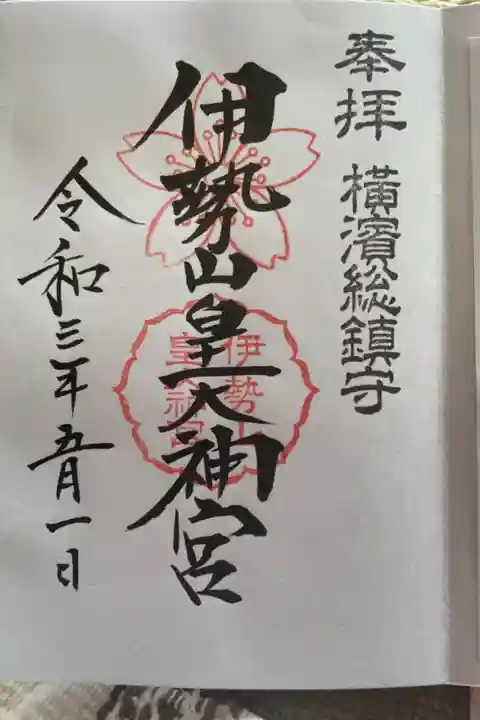 奉拝 横濱総鎮守
伊勢山皇大神宮
伊勢山
皇大神宮
令和三年五月一日